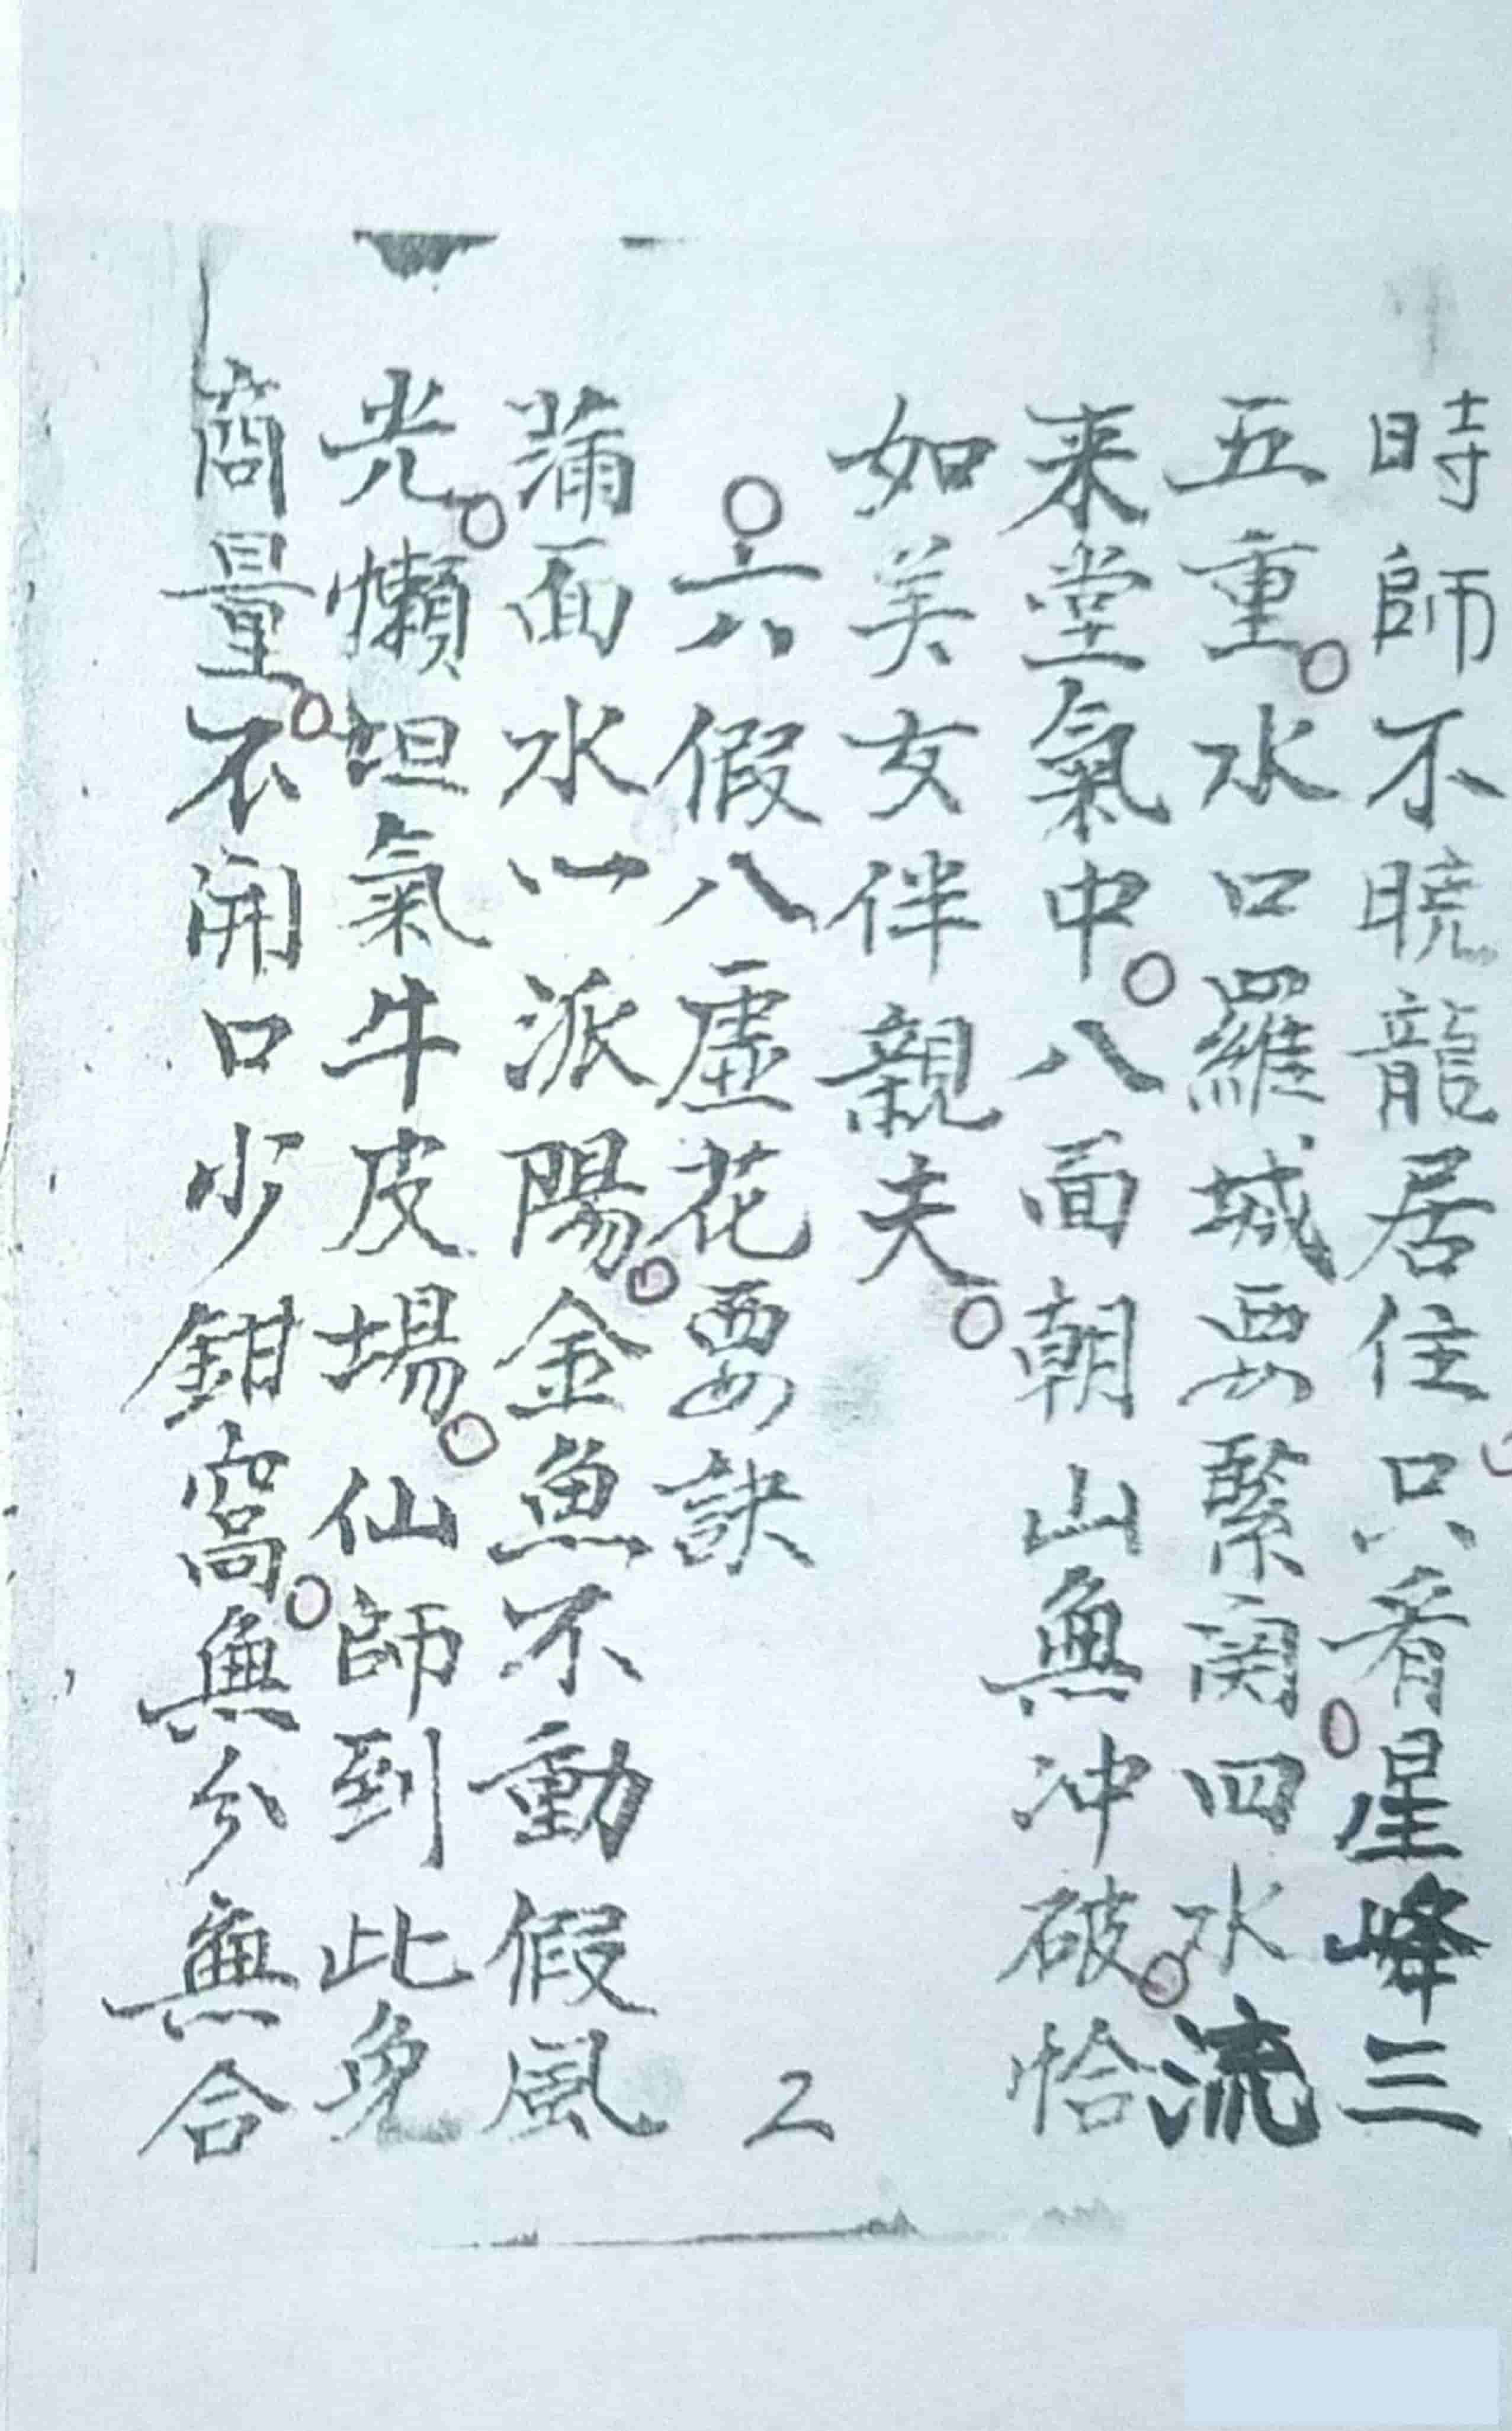 時師不曉龍居住只看。星峰三
五重。水口羅城要緊関四水流
来堂氣中。八面朝山無沖破。恰
如美女伴親夫。
○六假八虛花要訣
蒲面水一派陽。金魚不動假風
光。懶坦氣牛皮場。仙師到此免
商量。不開口少鉗窩。無分無合
2